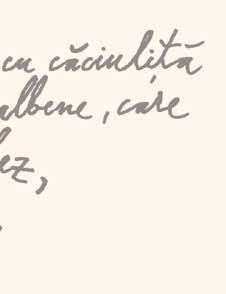 cu căciuliță
albene, care
ez,
,